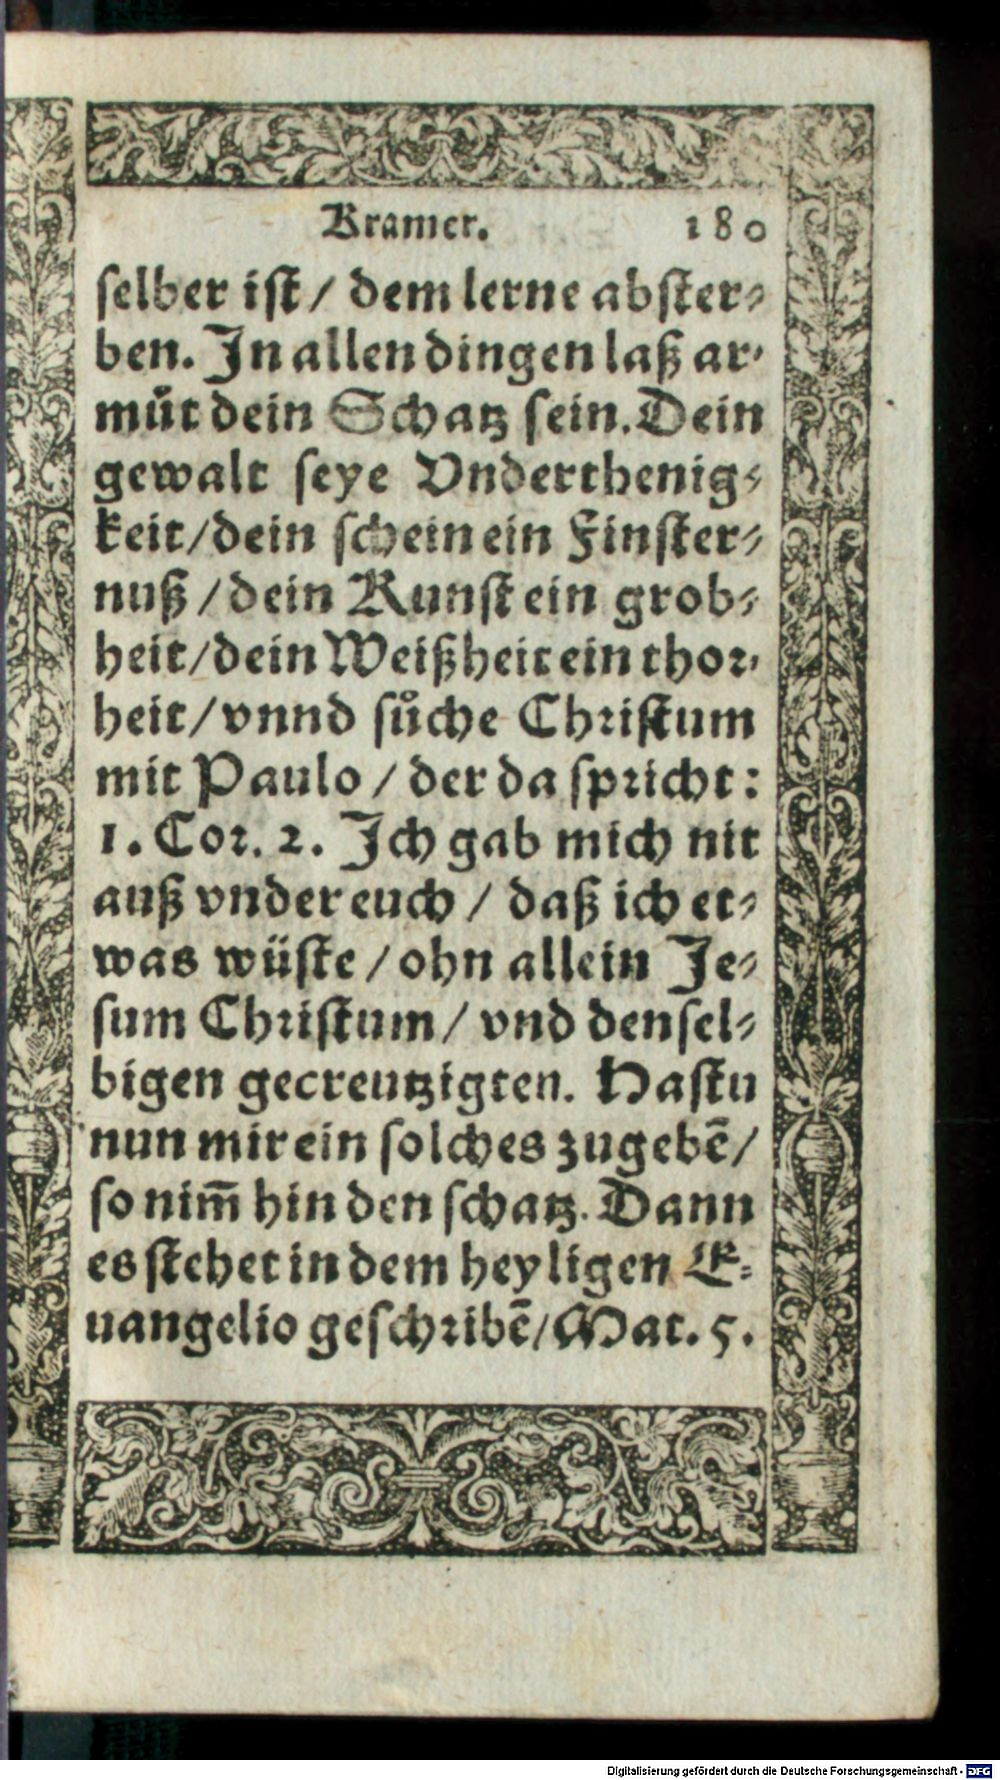 Kramer. 180
selber ist / dem lerne abster⸗
ben. In allen dingen laß ar⸗
můt dein Schatz sein. Dein
gewalt seye Vnderthenig⸗
keit / dein schein ein Finster⸗
nuß / dein Kunst ein grob⸗
heit / dein Weißheit ein thor⸗
heit / vnnd sůche Christum
mit Paulo / der da spricht:
1. Cor. 2. Ich gab mich nit
auß vnder euch / daß ich et⸗
was wüste / ohn allein Je⸗
sum Christum / vnd densel⸗
bigen gecreutzigten. Hastu
nun mir ein solches zugebē /
so nim̄ hin den schatz. Dann
es stehet in dem heyligen E⸗
uangelio geschribē / Mat. 5.
Digitalisierung gefördert durch die Deutsche Forschungsgemeinschaft - DFG